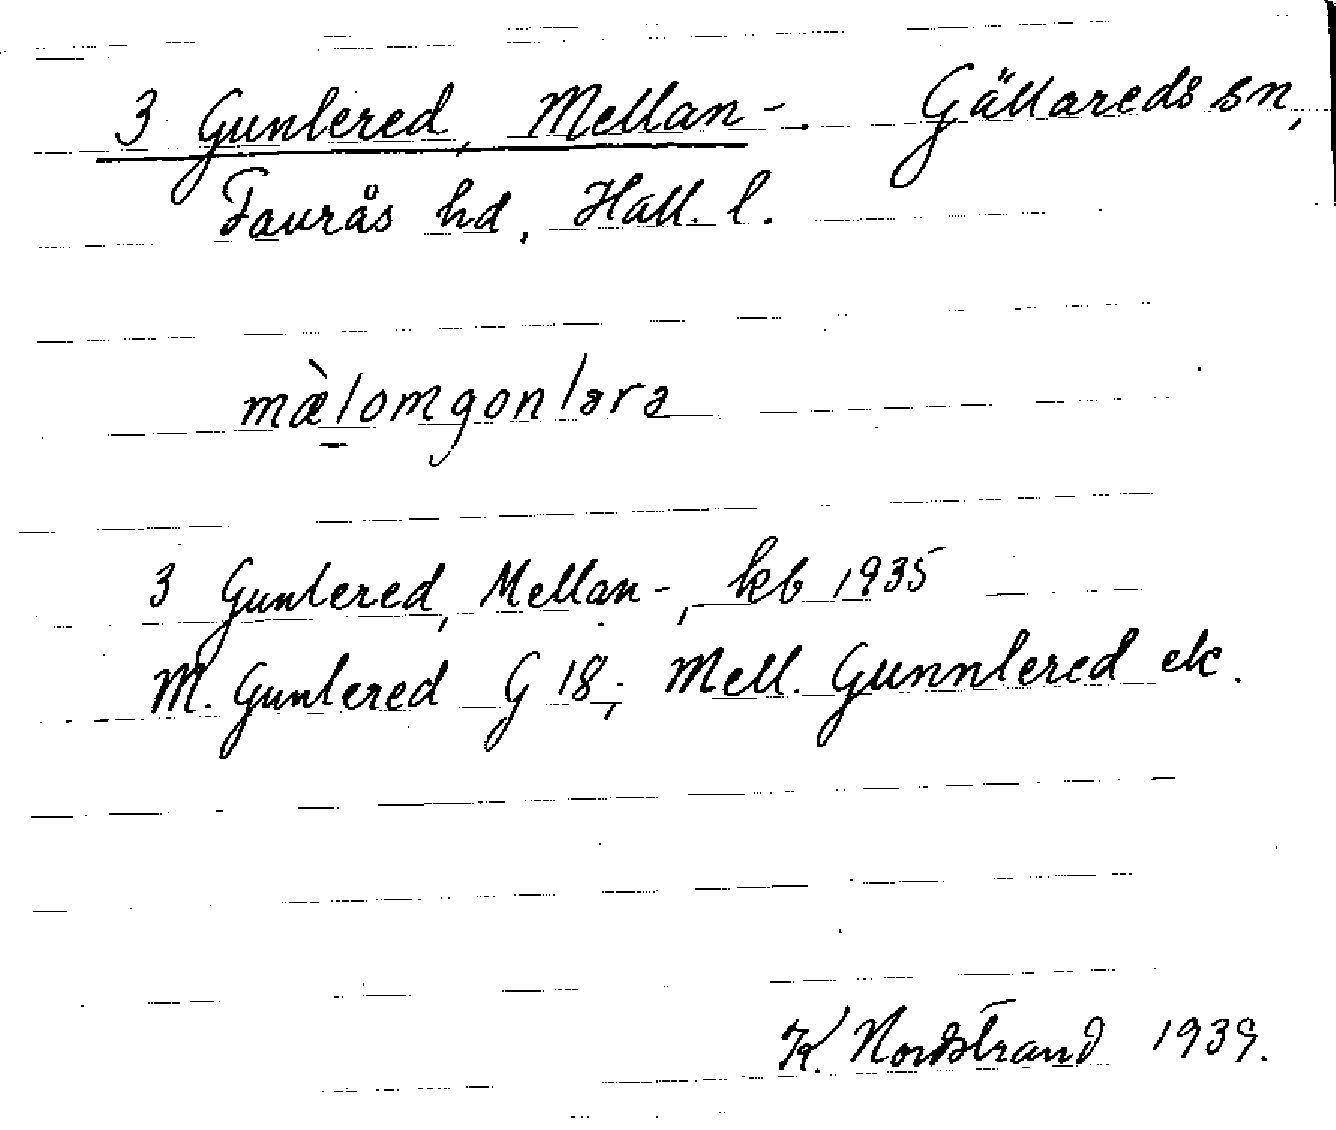 3 Gunlered, Mellan-. Gällareds sn,
Faurås hd, Hall. l.
mæ̀lomgonlərə
3 Gunlered, Mellan-, kb 1935
M. Gunlered G 18; Mell. Gunnlered ek.
K. Nordstrand 1939.